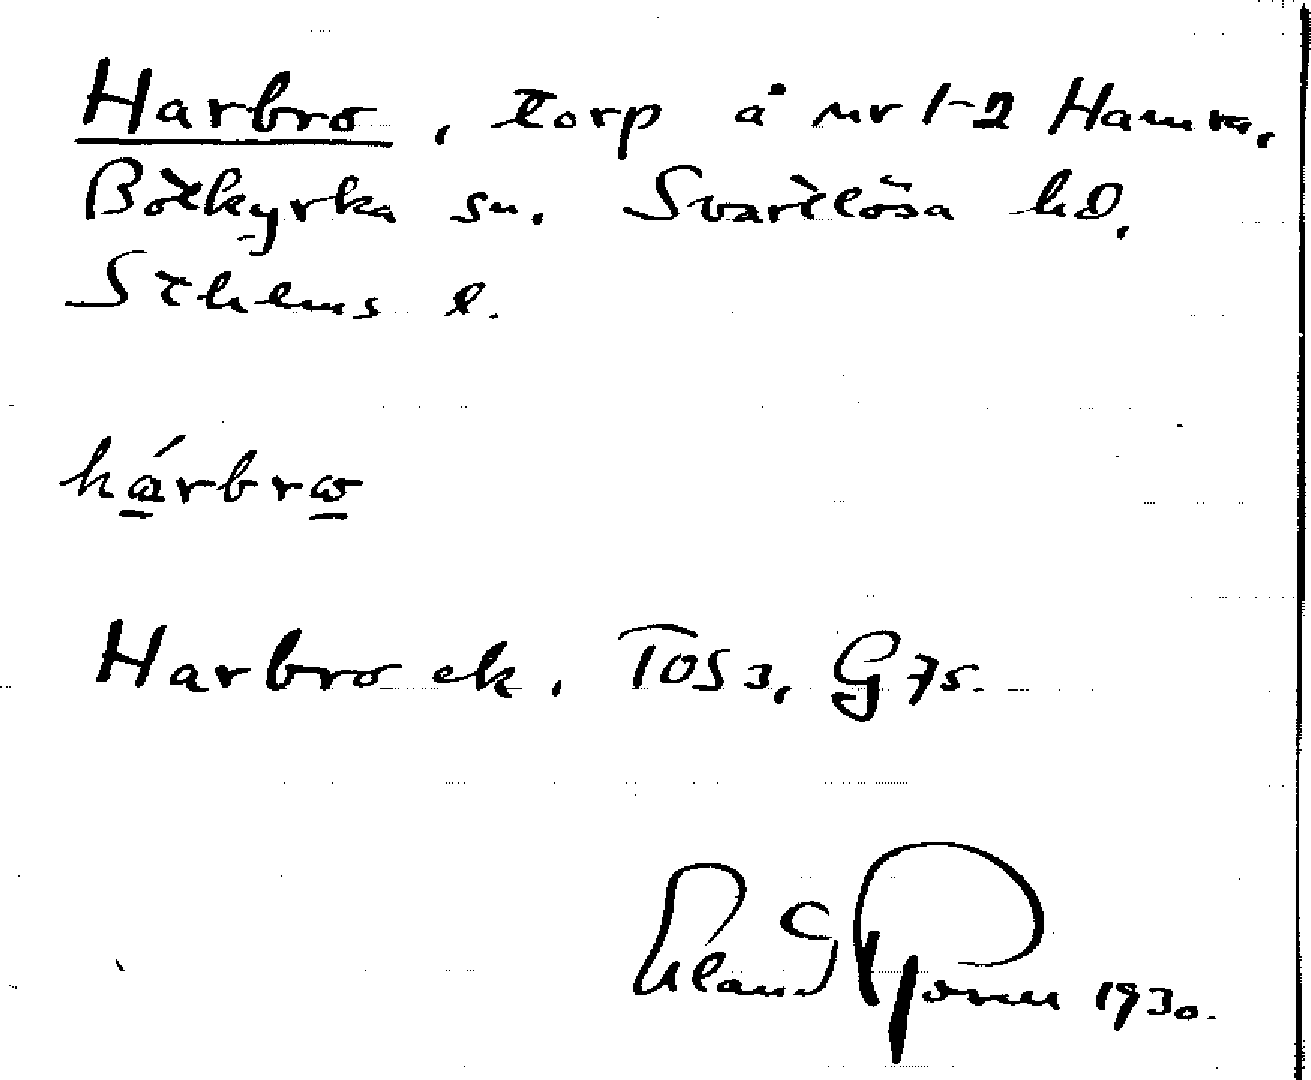 Harbro, torp å nr 1-2 Hamra,
Botkyrka sn. Svartlösa hd,
Sthlms l.
hárbrω
Harbro ek. TOS3, G75.
Erland Rosell 1930.